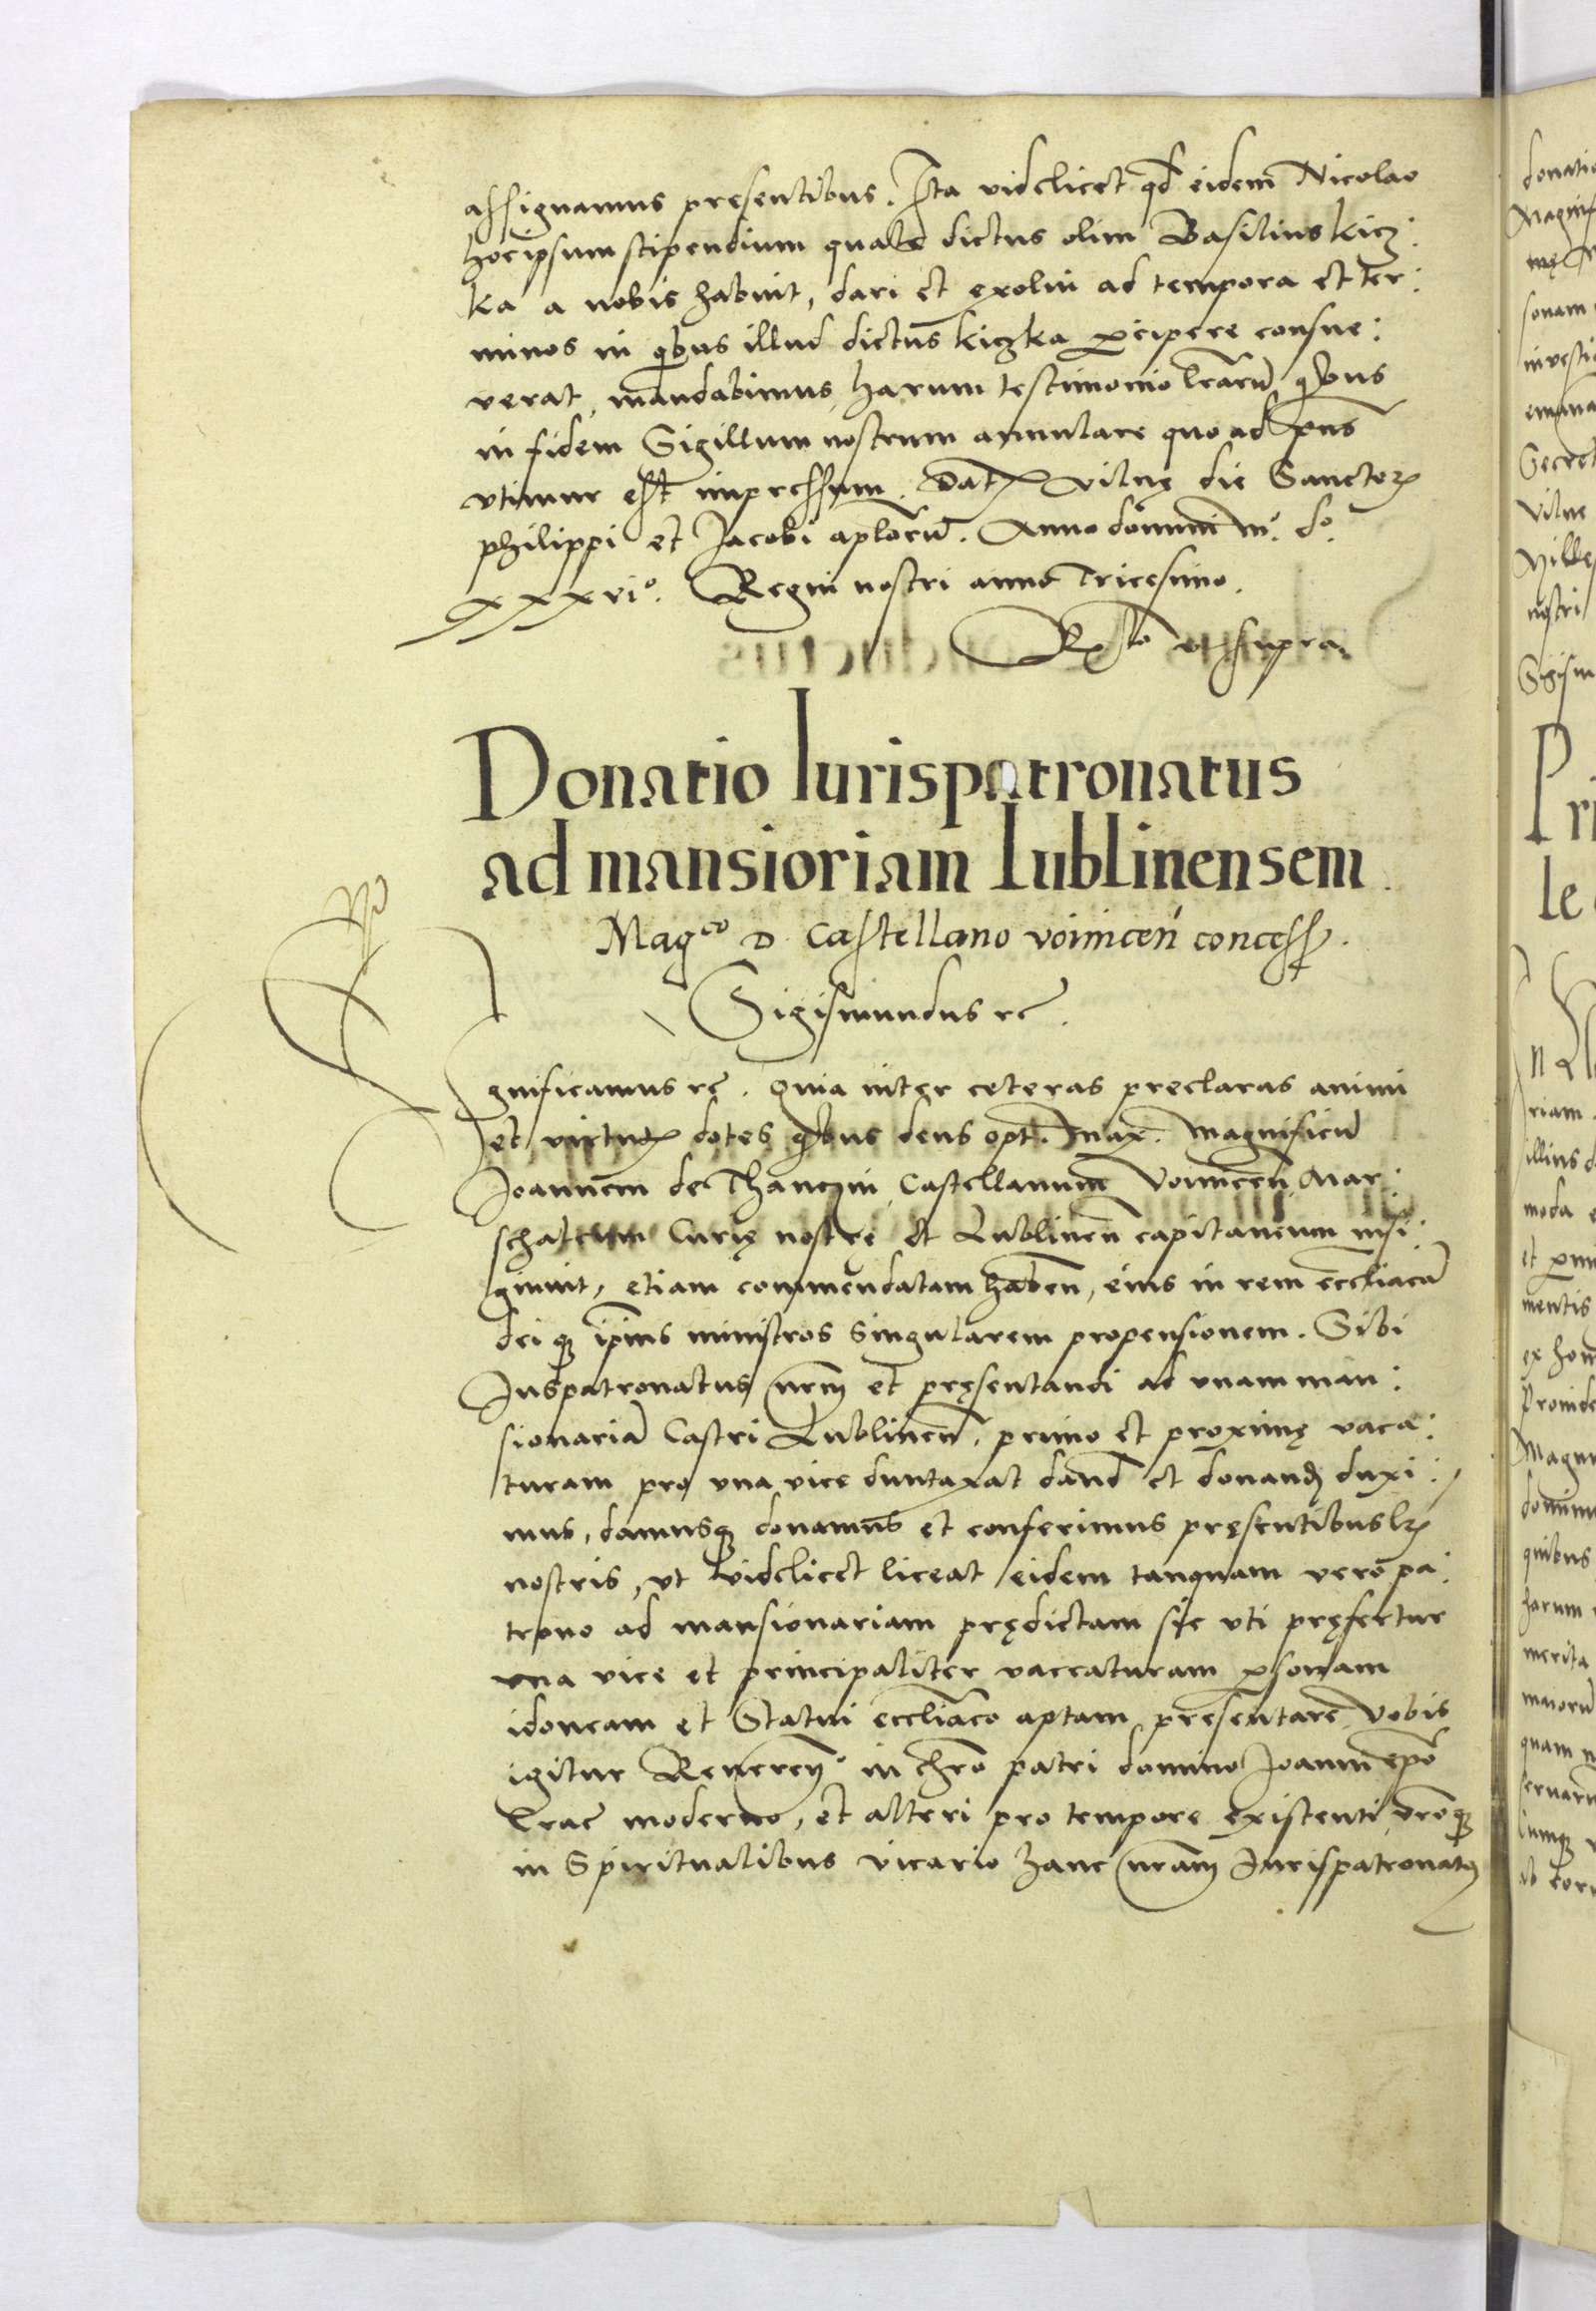 assignamus presentibus. Ita videlicet qđ eidem Nicolao
hoc ipsum stipendium quale dictus olim Basilius kicz:
ka a nobis habuit, dari et exolui ad tempora et ter:
minos in qbus illud dictus kiczka ꝑcipere consue:
verat, mandabimus harum testimonio lrarū qbus
in fidem Sigillum nostrum annulare quo ad pn̄s
vtimur est impressum. Datꝭ Vilnę die Sanctoꝝ
philippi et Jacobi aplorū. Anno domini mº. dº.
xxxviº. Regni nostri anno Tricesimo.
Rᵗᵒ ut supra.
Donatio Iurispatronatus
ad mansioriam lublinensem.
Magᶜᵒ D. Castellano voinicen̄ concess.
Sigismundus rc̄.
Significamus rc̄. Quia inter ceteras preclaras animi
et virtutꝭ dotes qbus deus opt. max. magnificū
Joannem de Thanczin Castellanum Voinicen̄, Mar:
schalcum Curię nostre et Lublinen̄ capitaneum insi:
gniuit, etiam commendatam haben̄, eius in rem eccliacā
deiqꝫ ipius ministros singularem propensionem. Sibi
Juspatronatus nrm̄ et pręsentandi ad vnam man:
sionariā Castri Lublinen̄, primo et proximę vaca:
turam pro vna vice duntaxat dand̄ et donanđ duxi:
mus, damusqꝫ donamus et conferimus pręsentibus lrꝭ
nostris, vt videlicet liceat eidem tanquam vero pa:
trono ad mansionariam prędictam sic vti pręfertur
vna vice et principaliter vaccaturam ꝑsonam
idoneam et Statui eccliaco aptam presentare Vobis
igitur Reueren̄º in chro patri domino Joanni epo
Crac̄ moderno, et alteri pro tempore existenti vroqꝫ
in Spiritualibus vicario hanc nram̄ Jurispatronatꝰ
donatio
sonam
Secret
Vilne
Mille
nostri
Sigism
Pri
le
riam
illius d
moda
mentis
Proinde
Magni
quibus
harum
merita
maiorū
quam